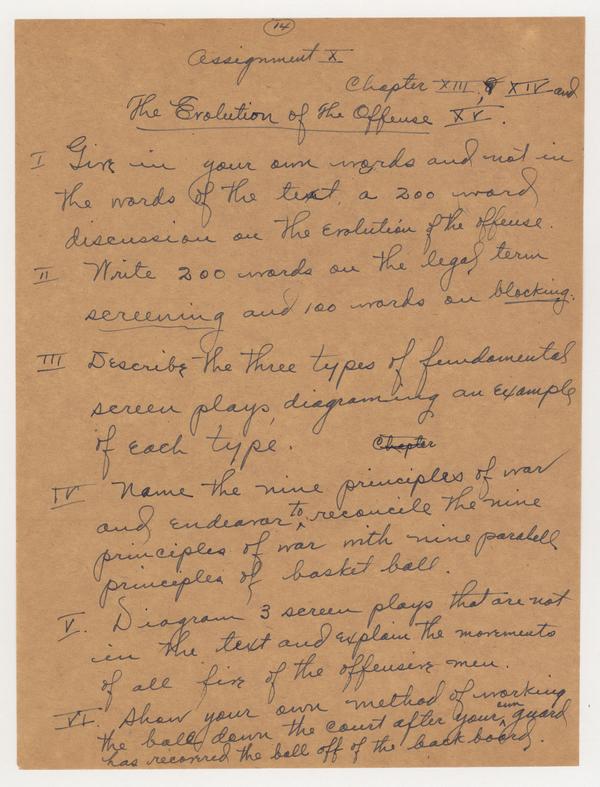 14
Assignment X
Chapter XIII, XIV and
The Evolution of the Offense XV.
I Give in your own words and not in
the words of the text, a 200 word
discussion on the Evolution of the offense.
II Write 200 words on the legal term
screening and 100 words on blocking.
III Describe the three types of fundamental
screen plays, diagraming an example
of each type. Chapter
IV Name the nine principles of war
and endeavor to reconcile the nine
principles of war with nine parabell
principles of basket ball.
V. Diagram 3 screen plays that are not
in the text and explain the movements
of all five of the offensive men.
VI. Show your own method of working
the ball down the court after your own guard
has recovered the ball off of the back board.